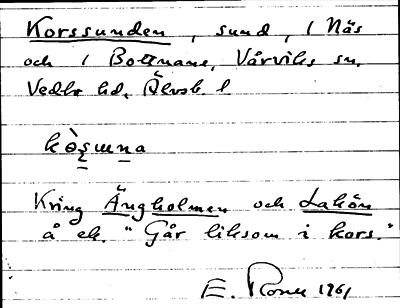 Korssunden, sund, i Näs
och i Bottnane, Vårviks sn.
Vedbo hd, Älvsb. l
Kring Ängholmen och Lakön
å ek. "Går liksom i kors."
E. 1961